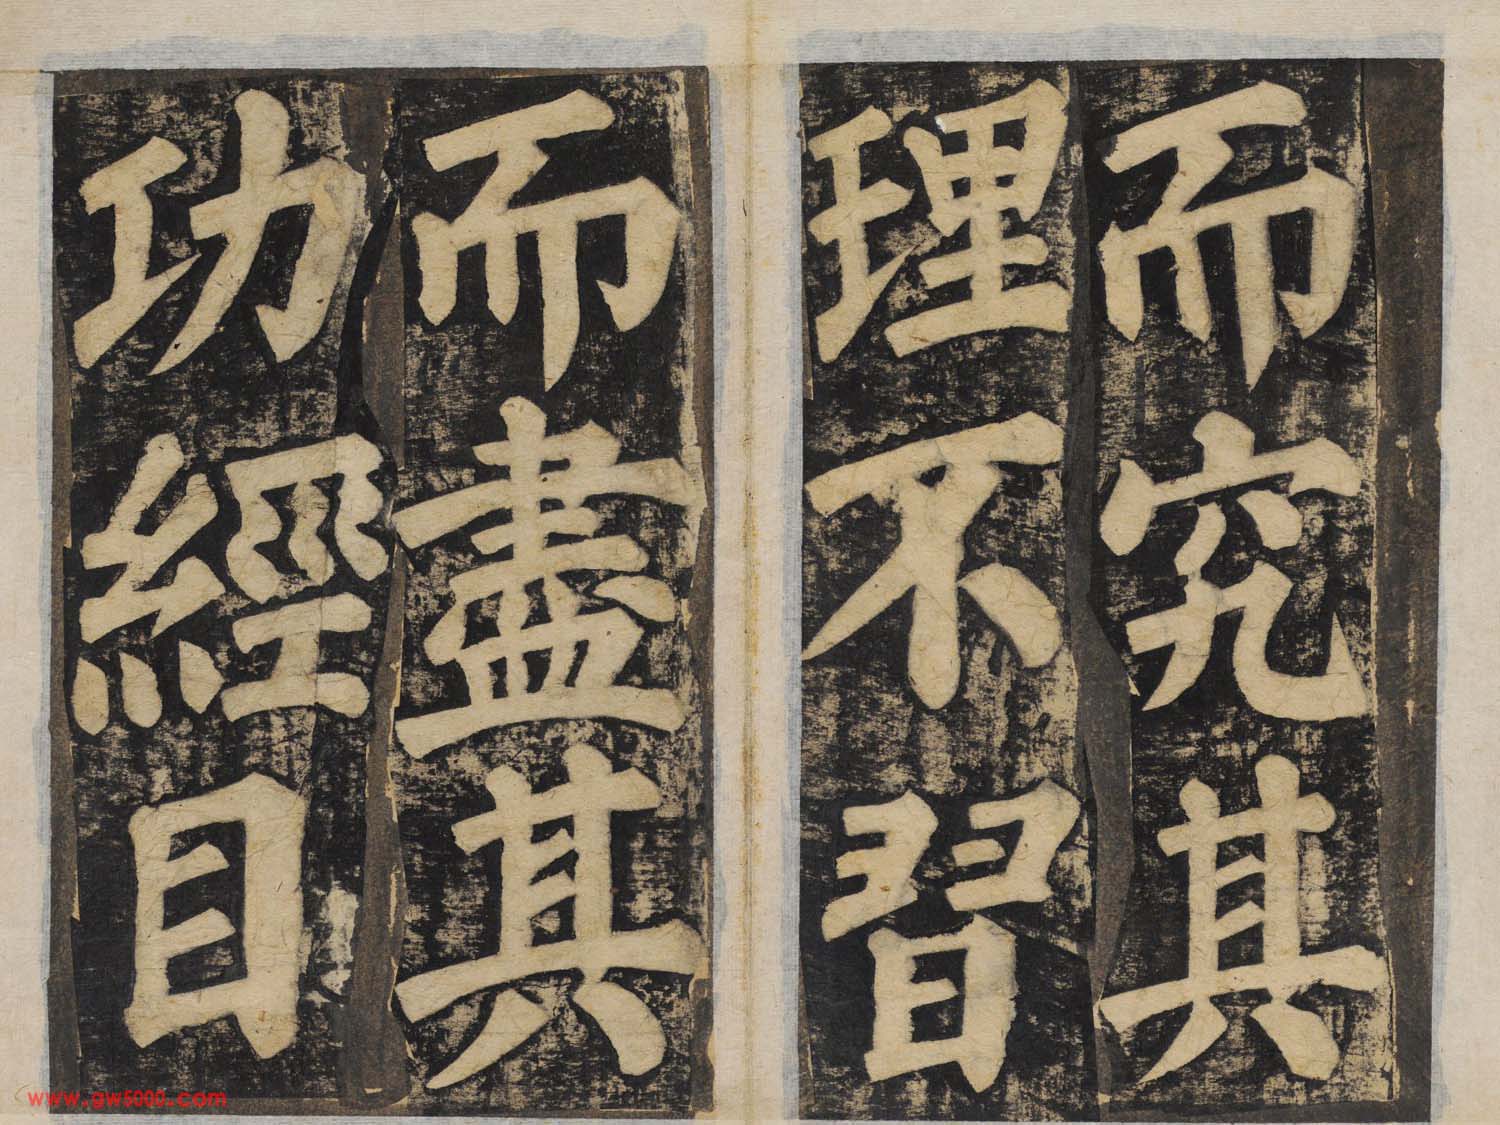 而究其
理不習
而盡其
功經目
www.gw5000.com